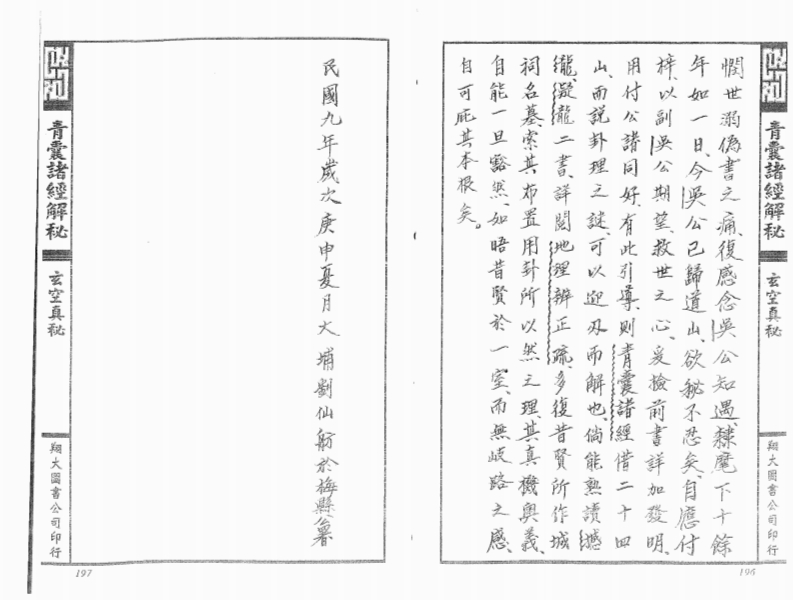 青囊諸經解秘
玄空真秘
翔大圖書公司印行
196
憫世溺偽書之痛、復感念吳公知遇、隸麾下十餘
年如一日、今吳公已歸道山、欲秘不忍矣、自應付
梓、以副吳公期望、救世之心、爰撿前書詳加發明、
用付公諸同好、有此引導、則青囊諸經借二十四
山、而說卦理之謎、可以迎刃而解也、倘能熟讀撼
龍、疑龍二書、詳閱地理辨正疏、多復昔賢所作城
祠名墓、索其布置用卦所以然之理、其真機奧義、
自能一旦豁然、如晤昔賢於一室、而無岐路之感、
自可庇其本根矣。
民國九年歲次庚申夏月大埔劉仙舫於梅縣僉署
青囊諸經解秘
玄空真秘
翔大圖書公司印行
197